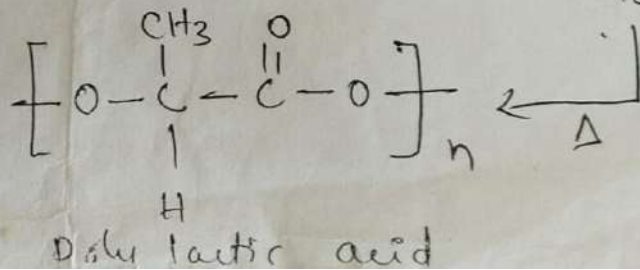 CH3 O
[ O - C - C - O ]n
Δ
H
Poly lactic acid